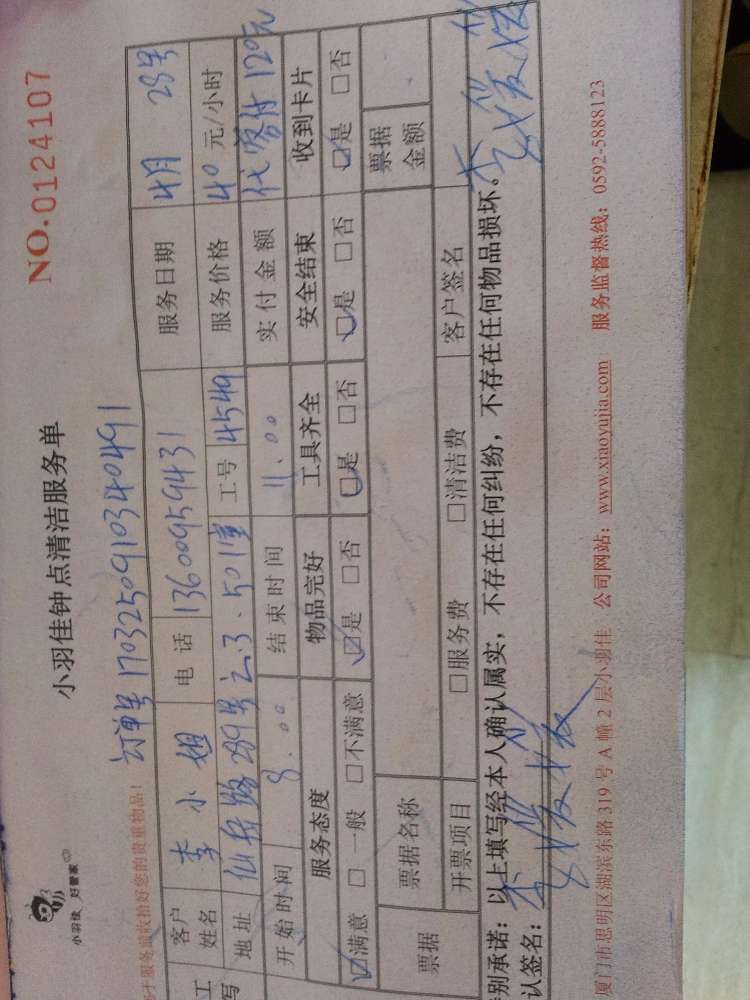 小羽佳 好管家
小羽佳钟点清洁服务单
NO.0124107
于服务前收拾好您的贵重物品!
订单号 1703250910340491
工 客户姓名 李小姐 电话 13600959431 服务日期 4月 28号
写 地址 仙岳路289号 工号 4549 服务价格 40 元/小时
开始时间 8.00 结束时间 11.00 实付金额 代客付120元
服务态度 物品完好 工具齐全 安全结束 收到卡片
☑满意 □一般 □不满意 ☑是 □否 ☑是 □否 ☑是 □否 ☑是 □否
票据 票据名称 票据金额
开票项目 □服务费 □清洁费 客户签名
别承诺:以上填写经本人确认属实,不存在任何纠纷,不存在任何物品损坏。
认签名:
厦门市思明区湖滨东路 319 号 A 幢 2 层小羽佳 公司网站:www.xiaoyujia.com 服务监督热线:0592-5888123